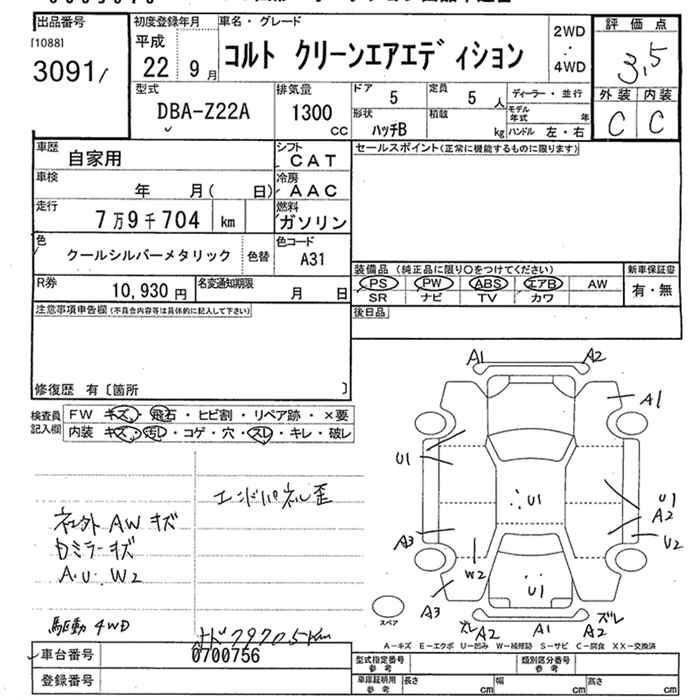 出品番号
[1088]
3091
初度登録年月
平成
22 年 9 月
車名・グレード
コルト クリーンエアエディション
2WD
4WD
評価点
3,5
外装 内装
C C
型式
DBA-Z22A
排気量
1300
CC
ドア
5
定員
5 人
形状
ハッチB
積載
kg
ディーラー・並行
モデル年式 年
ハンドル 左・右
車歴
自家用
シフト
CAT
車検
年 月( 日)
冷房
AAC
走行
7万9千704 km
燃料
ガソリン
色
クールシルバーメタリック
色替
色コード
A31
R券
10,930 円
名変通知期限
月 日
セールスポイント(正常に機能するものに限ります)
装備品 (純正品に限り○をつけてください)
新車保証書
PS PW ABS エアB AW
有・無
SR ナビ TV カワ
後日品
注意事項申告欄(不具合内容等は具体的に記入して下さい)
修復歴 有〔箇所 〕
検査員
記入欄
FW キズ・飛石・ヒビ割・リペア跡・×要
内装 キズ・汚レ・コゲ・穴・スレ・キレ・破レ
エンドパネル歪
ネェ外 AW キズ
ミラーキズ
A.U. W2
駆動 4WD
79705km
車台番号
0700756
登録番号
A1
A2
A1
U1
U1
U1
A2
U2
A3
W2
U1
A3
スペア
ズレ
A2
A1
ズレ
A2
A-キズ E-エクボ U-凹み W-補修跡 S-サビ C-腐食 XX-交換済
型式指定番号
参考
類別区分番号
参考
車庫証明用
参考
長さ
cm
幅
cm
高さ
cm